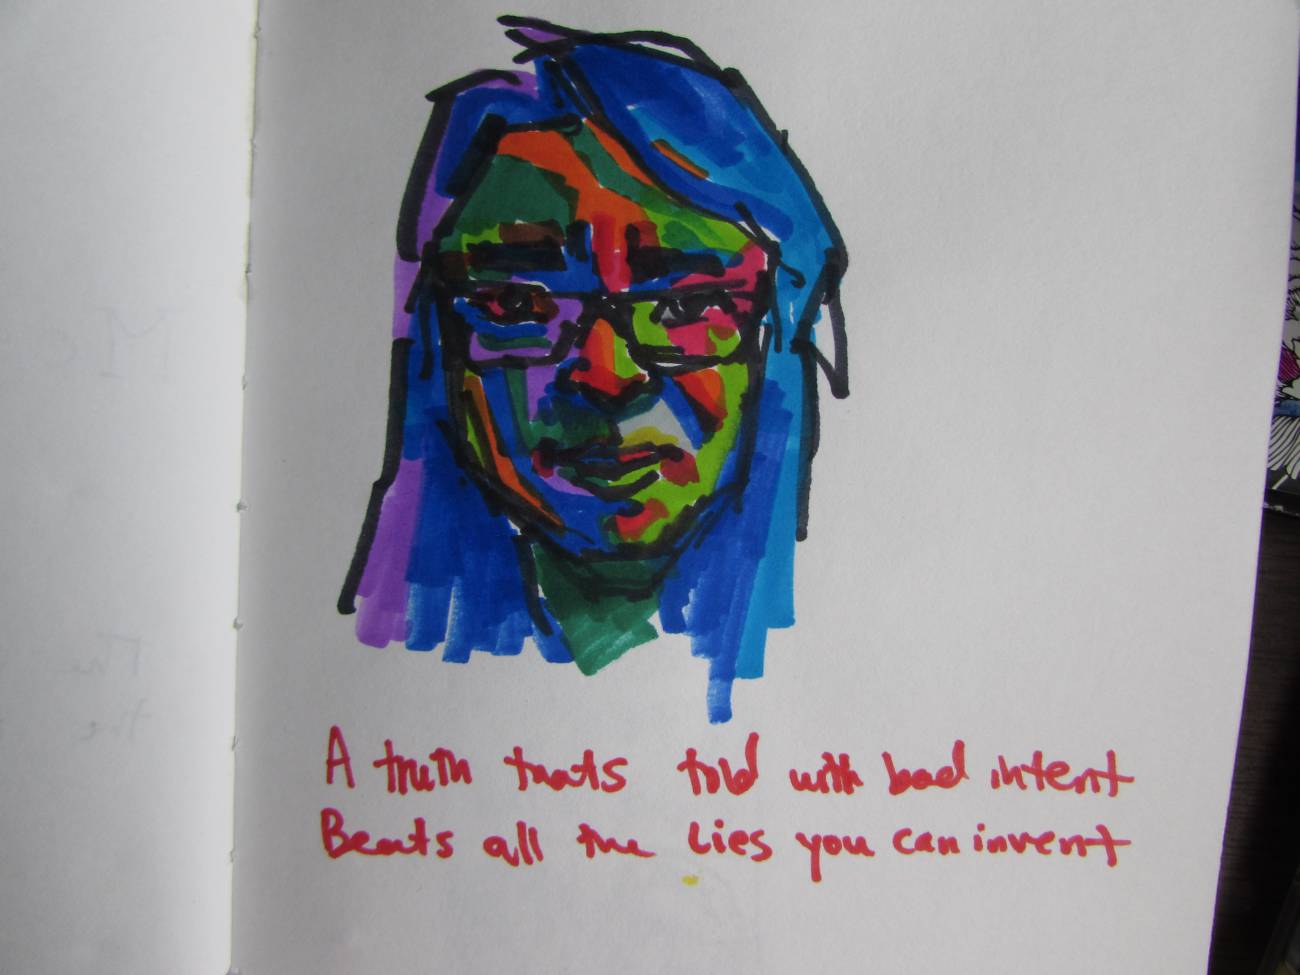 A truth thats told with bad intent
Beats all the Lies you can invent